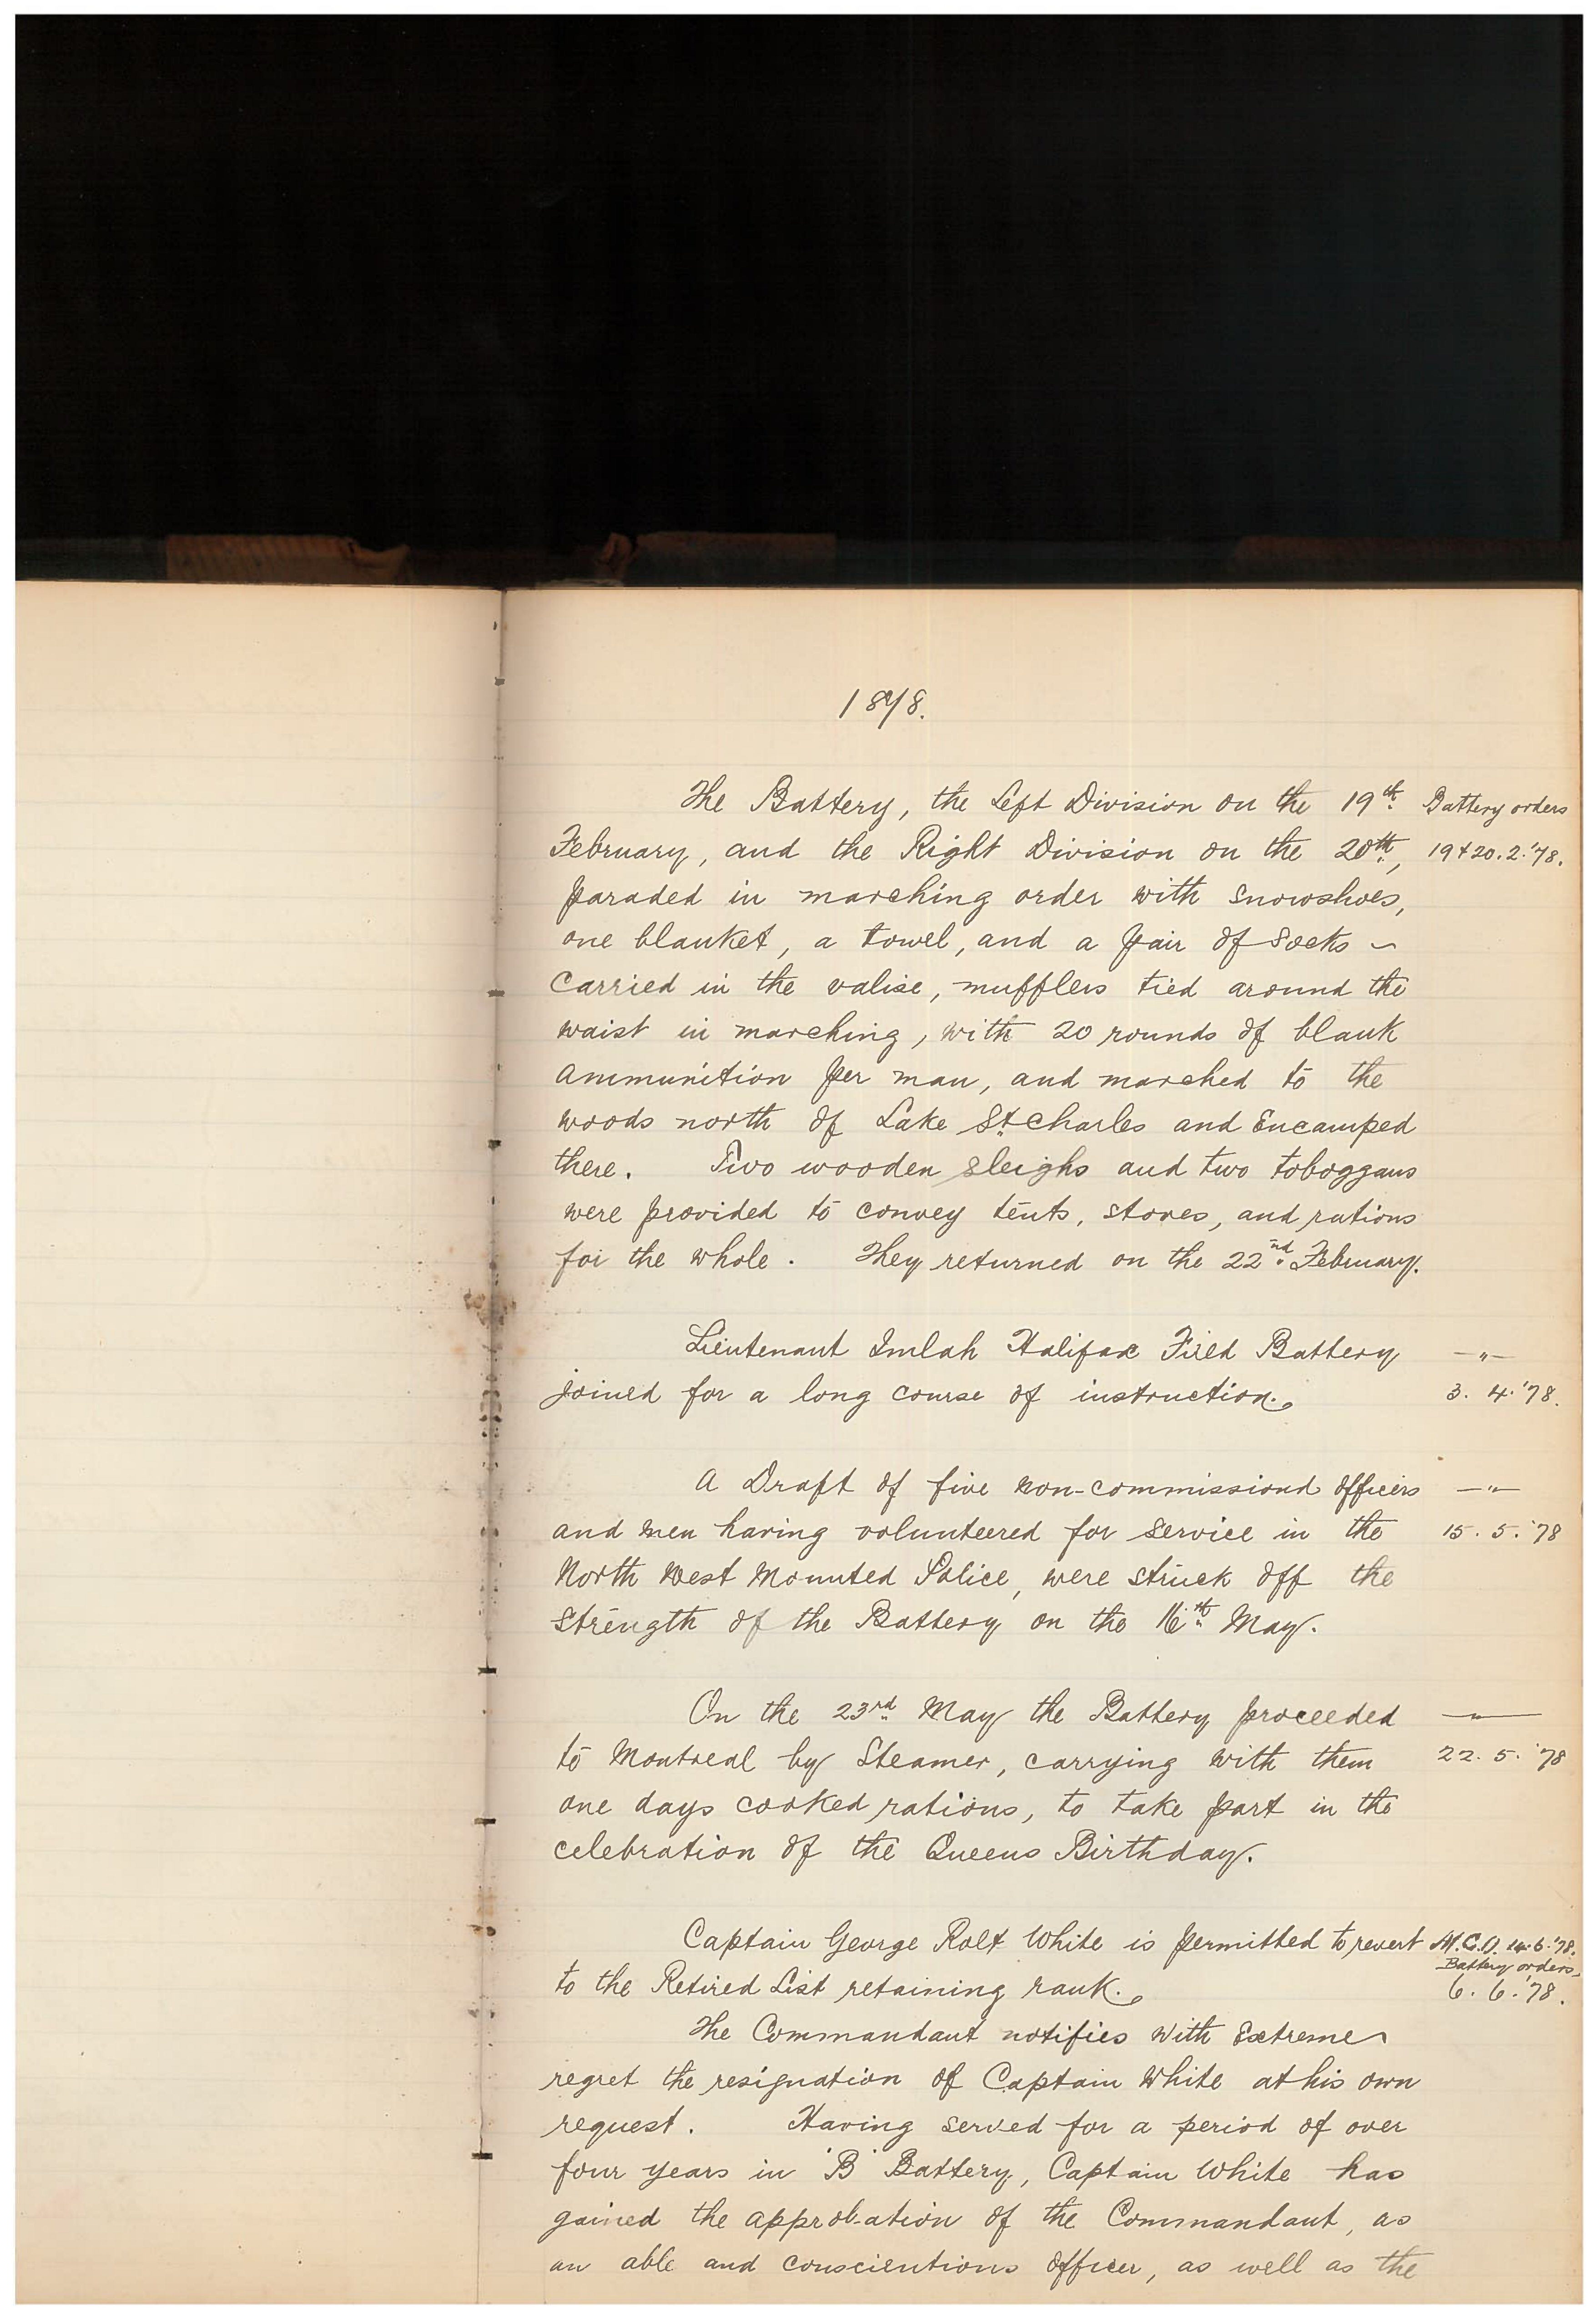 1878.
The Battery, the Left Division on the 19th Battery orders
February, and the Right Division on the 20th, 19 & 20. 2. '78.
paraded in marching order with snowshoes,
one blanket, a towel, and a pair of socks –
carried in the valise, mufflers tied around the
waist in marching, with 20 rounds of blank
ammunition per man, and marched to the
woods north of Lake St. Charles and Encamped
there. Two wooden sleighs and two toboggans
were provided to convey tents, stoves, and rations
for the whole. They returned on the 22nd February.
Lieutenant Imlah Halifax Field Battery —"—
joined for a long course of instruction. 3. 4. '78.
A Draft of five non-commissiond officers —"—
and men having volunteered for service in the 15. 5. '78
North West Mounted Police, were struck off the
strength of the Battery on the 16th May.
On the 23rd May the Battery proceeded —"—
to Montreal by Steamer, carrying with them 22. 5. '78
one days cooked rations, to take part in the
celebration of the Queens Birthday.
Captain George Rolt White is permitted to revert M.G.O. 14. 6. '78.
Battery orders,
to the Retired List retaining rank. 6. 6. '78.
The Commandant notifies with Extreme
regret the resignation of Captain White at his own
request. Having served for a period of over
four years in 'B' Battery, Captain White has
gained the approb-ation of the Commandant, as
an able and conscientious officer, as well as the